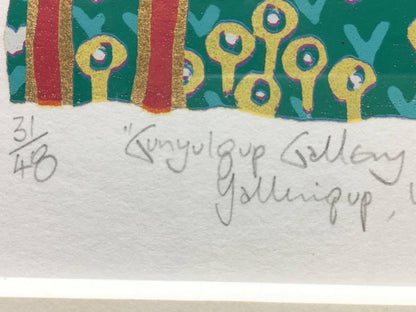 31/48
"Gunyulgup Gallery
Yallingup, W